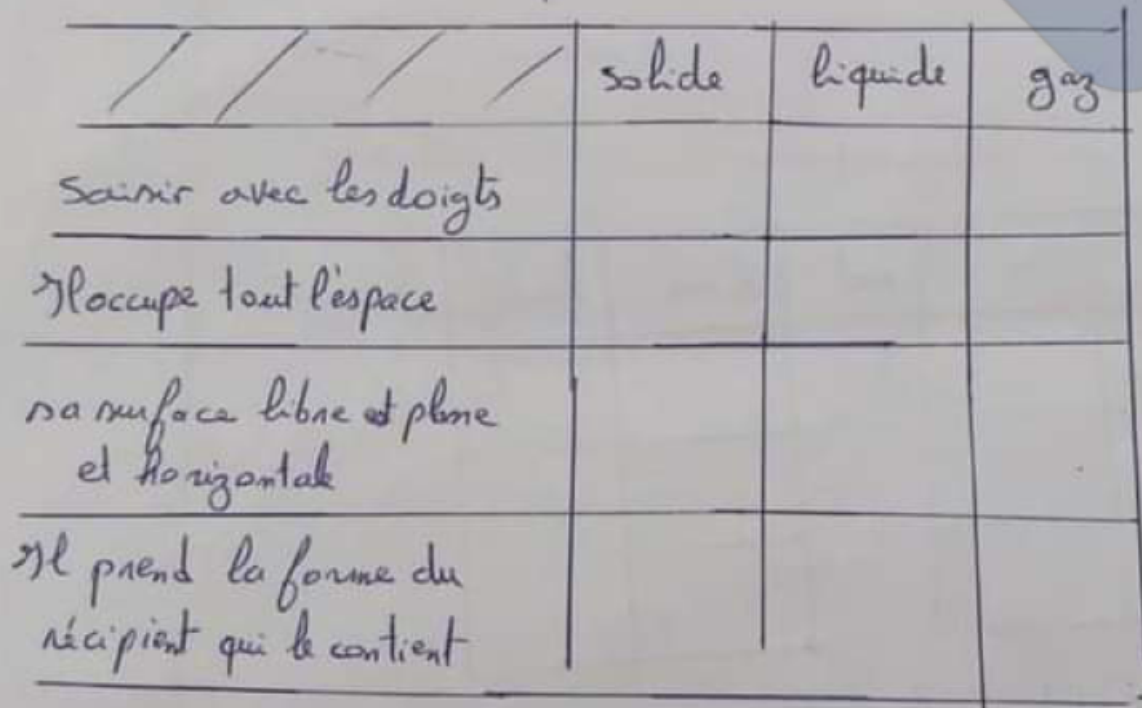 solide liquide gaz
Saisir avec les doigts
Il occupe tout l'espace
sa surface libre est plane
et horizontale
Il prend la forme du
récipient qui le contient